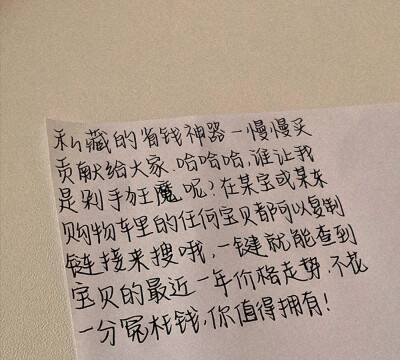 私藏的省钱神器一慢慢买
贡献给大家.哈哈哈,谁让我
是剁手狂魔呢?在某宝或某东
购物车里的任何宝贝都可以复制
链接来搜哦,一键就能查到
宝贝的最近一年价格走势.不花
一分冤枉钱,你值得拥有!